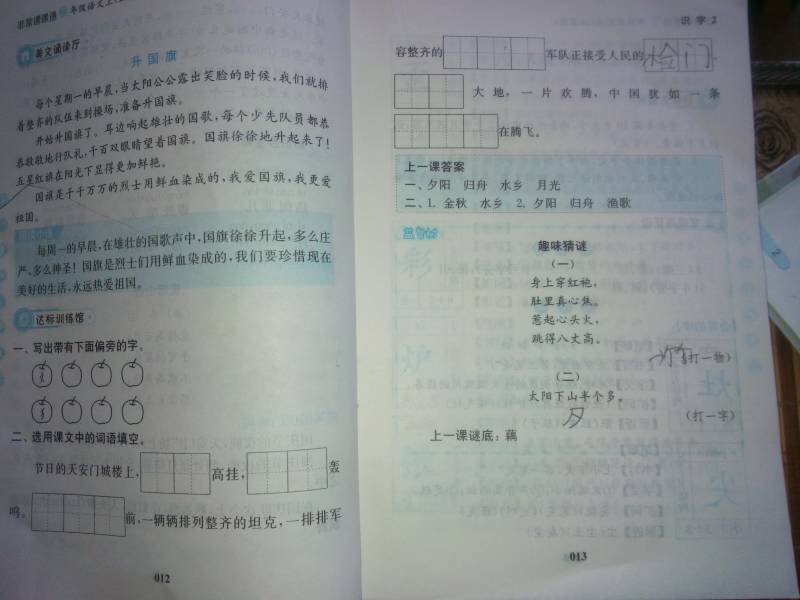 非常课课通 一年级语文上
美文诵读厅
升国旗
每个星期一的早晨,当太阳公公露出笑脸的时候,我们就排
着整齐的队伍来到操场,准备升国旗。
开始升国旗了。耳边响起雄壮的国歌,每个少先队员都恭
恭敬敬地行队礼,千百双眼睛望着国旗。国旗徐徐地升起来了!
五星红旗在阳光下显得更加鲜艳。
国旗是千千万万的烈士用鲜血染成的,我爱国旗,我更爱
祖国。
每周一的早晨,在雄壮的国歌声中,国旗徐徐升起,多么庄
严,多么神圣!国旗是烈士们用鲜血染成的,我们要珍惜现在
美好的生活,永远热爱祖国。
达标训练馆
一、写出带有下面偏旁的字。
二、选用课文中的词语填空。
节日的天安门城楼上, 高挂, 轰
鸣。 前,一辆辆排列整齐的坦克,一排排军
012
识字2
容整齐的 军队正接受人民的 检门。
大地,一片欢腾,中国犹如一条
在腾飞。
上一课答案
一、夕阳 归舟 水乡 月光
二、1. 金秋 水乡 2. 夕阳 归舟 渔歌
趣味猜谜
(一)
身上穿红袍,
肚里真心焦。
惹起心头火,
跳得八丈高。
(打一物)
(二)
太阳下山半个多。
夕
(打一字)
上一课谜底:藕
013